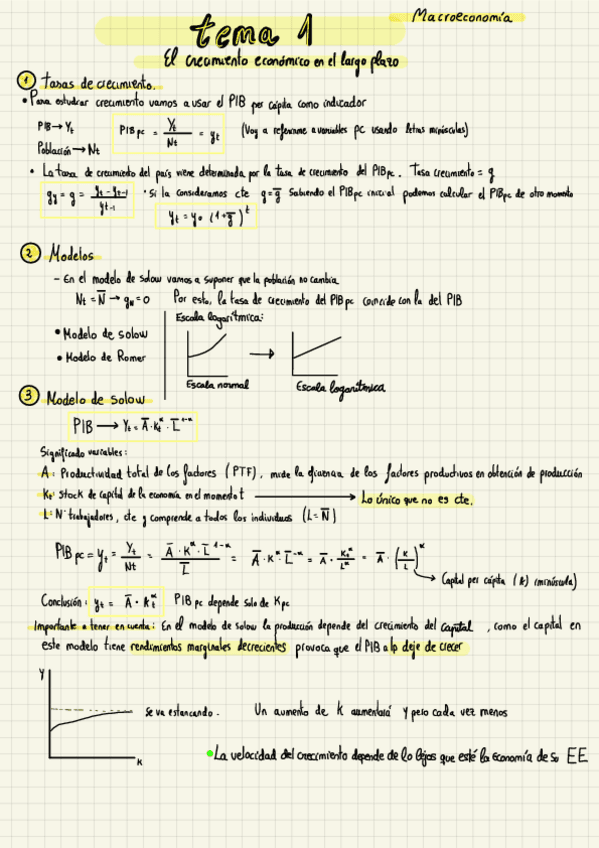 Macroeconomía
tema 1
El crecimiento económico en el largo plazo
1 Tasas de crecimiento.
• Para estudiar crecimiento vamos a usar el PIB per cápita como indicador
PIB → Yt
Población → Nt
PIBpc = Yt / Nt = yt (Voy a referirme a variables pc usando letras minúsculas)
• La tasa de crecimiento del país viene determinada por la tasa de crecimiento del PIBpc. Tasa crecimiento = g
gy = g = yt - yt-1 / yt-1 • Si la consideramos cte g = g̅ Sabiendo el PIBpc inicial podemos calcular el PIBpc de otro momento
yt = y0 (1+g̅)^t
2 Modelos
- En el modelo de Solow vamos a suponer que la población no cambia
Nt = N̅ → gN = 0 Por esto, la tasa de crecimiento del PIBpc coincide con la del PIB
Escala logarítmica:
• Modelo de Solow
• Modelo de Romer
Escala normal
Escala logarítmica
3 Modelo de Solow
PIB → Yt = A̅ · Kt^α · L̅^1-α
Significado variables:
A: Productividad total de los factores (PTF), mide la eficiencia de los factores productivos en obtención de producción
Kt: Stock de capital de la economía en el momento t → Lo único que no es cte.
L = Nº trabajadores, cte y comprende a todos los individuos (L = N̅)
PIBpc = yt = Yt / Nt = A̅ · K^α · L̅^1-α / L̅ = A̅ · K^α · L̅^-α = A̅ · Kt^α / L^α = A̅ · (K / L)^α
Capital per cápita (k) (minúscula)
Conclusión: yt = A̅ · kt^α PIBpc depende solo de Kpc
Importante a tener en cuenta: En el modelo de Solow la producción depende del crecimiento del capital, como el capital en
este modelo tiene rendimientos marginales decrecientes provoca que el PIB a lp deje de crecer
Y
Se va estancando.
Un aumento de K aumentará Y pero cada vez menos
K
• La velocidad del crecimiento depende de lo lejos que esté la economía de su EE